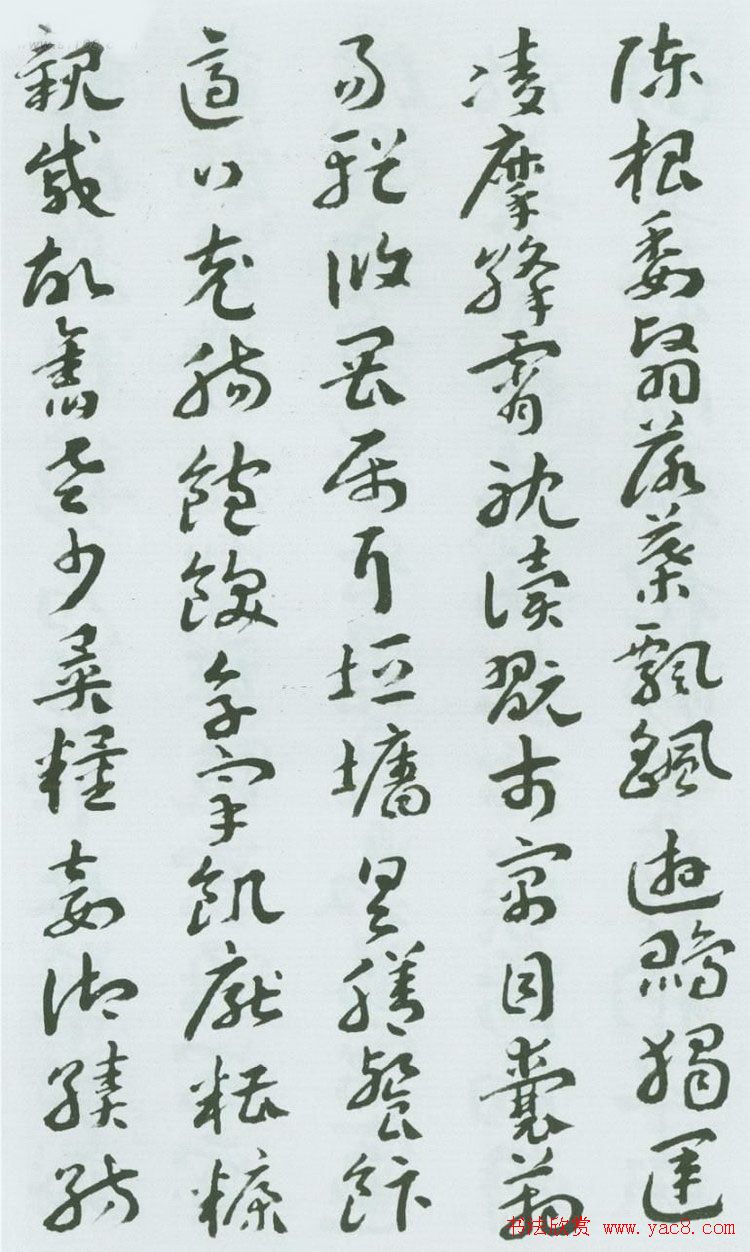 陳根委翳落葉飄颻遊鵾獨運
凌摩絳霄耽讀翫市寓目囊箱
易輶攸畏屬耳垣墻具膳餐飯
適口充腸飽飫烹宰飢厭糟糠
親戚故舊老少異糧妾御績紡
书法欣赏 www.yac8.com